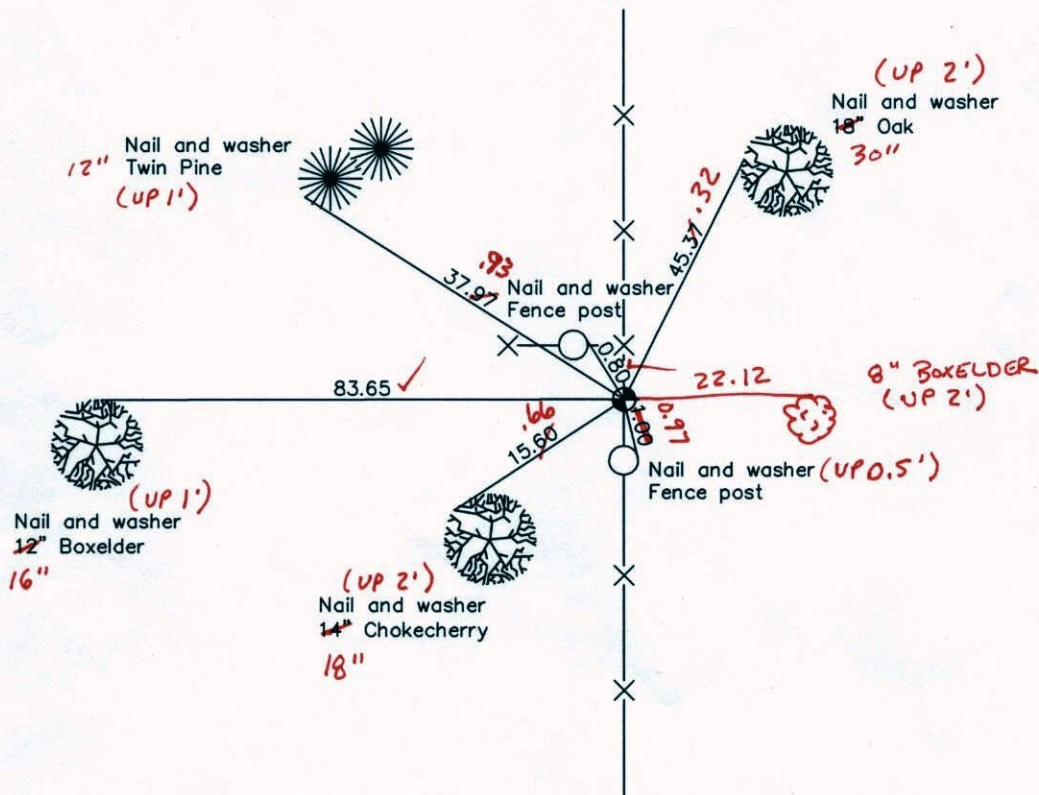 (UP 2')
Nail and washer
18" Oak
30"
Nail and washer
12" Twin Pine
(UP 1')
45.37 .32
.93
37.97
Nail and washer
Fence post
0.80
83.65 ✓
22.12
8" BOXELDER
(UP 2')
.66
15.60
1.00 0.97
Nail and washer (UP 0.5')
Fence post
(UP 1')
Nail and washer
12" Boxelder
16"
(UP 2')
Nail and washer
14" Chokecherry
18"